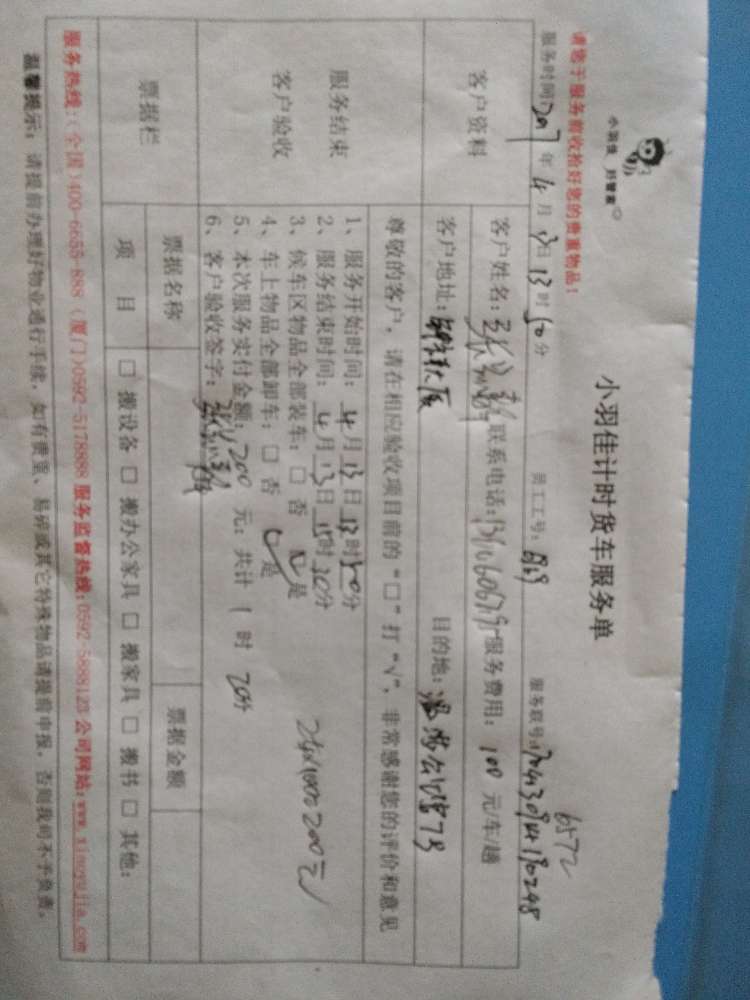 小羽佳 好管家
小羽佳计时货车服务单
请您于服务前收拾好您的贵重物品！
6572
服务时间：2017年4月13日13时50分 员工工号： 服务联号：
客户资料
客户姓名： 联系电话： 服务费用：100元/车/趟
客户地址： 目的地：
尊敬的客户，请在相应验收项目前的“□”打“√”，非常感谢您的评价和意见
服务结束
客户验收
1、服务开始时间：4月13日13时50分
2、服务结束时间：4月13日15时30分
3、候车区物品全部装车：□否 ☑是
4、车上物品全部卸车：□否 ☑是
5、本次服务实付金额：200元；共计1时20分
6、客户验收签字：
票据栏
票据名称 票据金额
项目 □搬设备 □搬办公家具 □搬家具 □搬书 □其他：
服务热线：（全国）400-6655-888（厦门）0592-5178888 服务监督热线：0592-5888123 公司网站：www.xiaoyujia.com
温馨提示：请提前办理好物业通行手续，如有贵重、易碎或其它特殊物品请提前申报，否则我司不予负责。